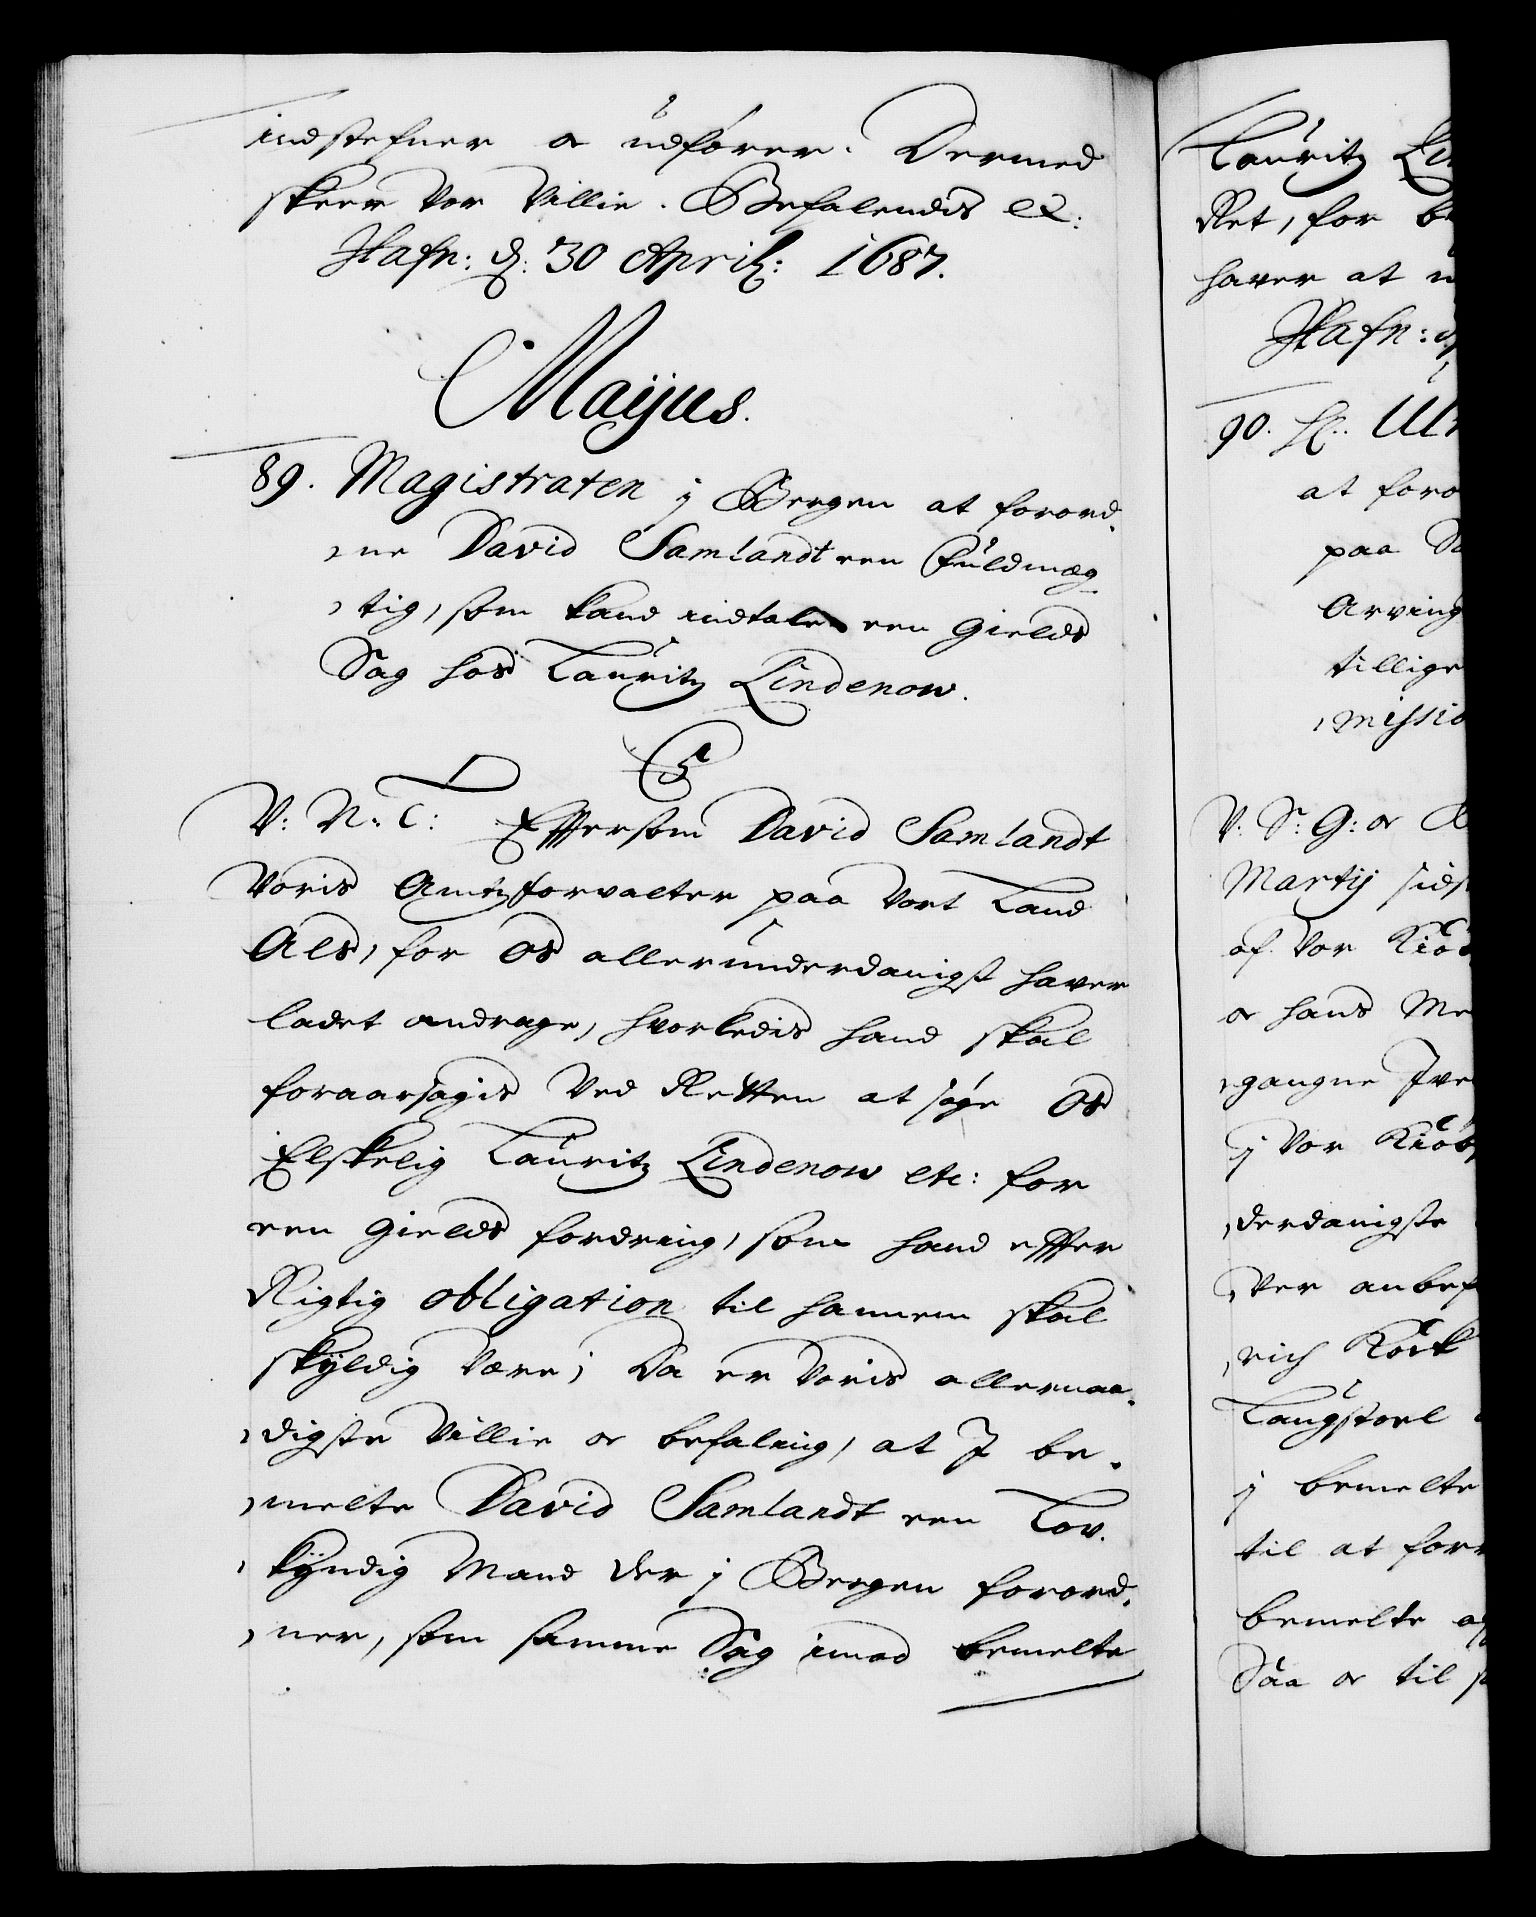 indstefner oc udfører. Dermed
skeer Vor Villie. Befalendis etc:
Hafn: d: 30 April: 1687.
Maijus.
89. Magistraten j Bergen at forord,
,ne David Samlandt een Fuldmæg,
,tig, som kand indtale een Gields
Sag hos Lauritz Lindenow.
C5
V: N. T: Effersom David Samlandt
Voris Amtzforvalter paa Vort Land
Als, for Os allerunderdanigst haver
ladet andrage, hvorledis hand skal
foraarsagis Ved Retten at søge Os
Elskelig Lauritz Lindenow etc: for
een Gields fordring, som hand effter
Rigtig obligation til hannem skal
skyldig Være; Da er Voris allernaa,
,digste Villie oc befaling, at I be,
,melte David Samlandt een Lov,
,kyndig Mand der j Bergen forord,
,ner, som samme Sag imod bemelte
Lauritz
Ret, for
haver at
Hafn:
90. H:
at
paa
Arving
tillige
V: S: G: oc
Martij
af Vor
oc hans
,gangne
j Vor
,derdanigste
,ver
,rich
Langstoel
j bemelte
til at
bemelte
Saa oc til